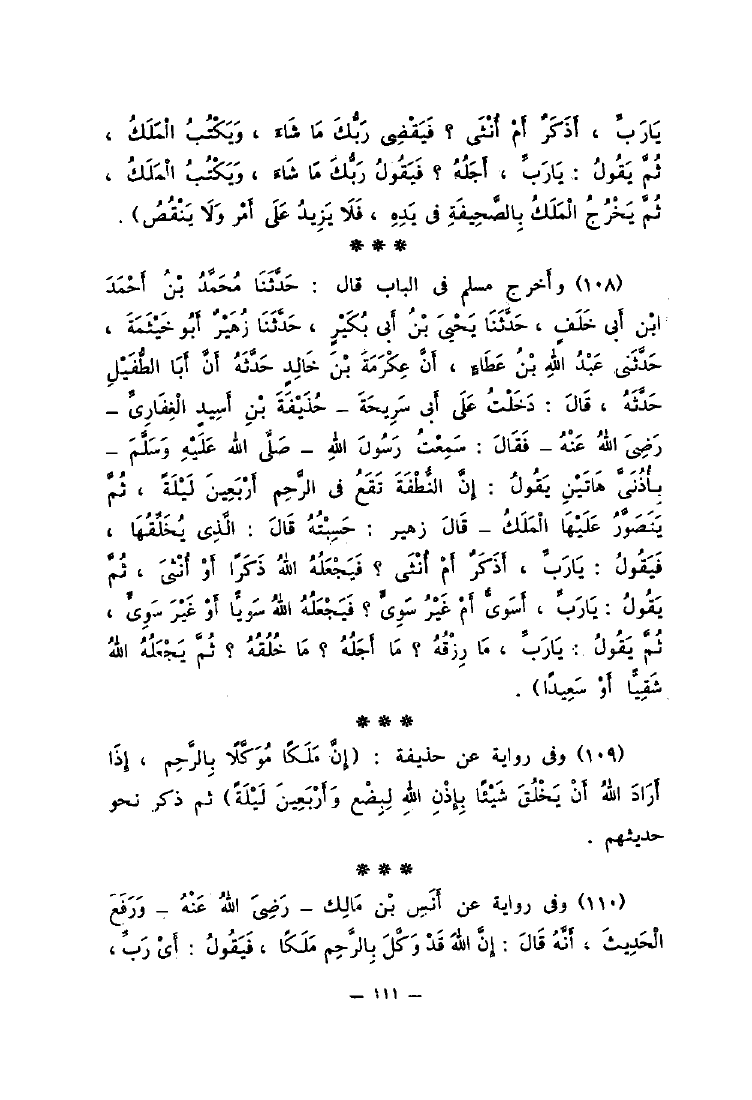 يَارَبِّ ، أَذَكَرٌ أَمْ أُنْثَى ؟ فَيَقْضِى رَبُّكَ مَا شَاءَ ، وَيَكْتُبُ الْمَلَكُ ،
ثُمَّ يَقُولُ : يَارَبِّ ، أَجَلُهُ ؟ فَيَقُولُ رَبُّكَ مَا شَاءَ ، وَيَكْتُبُ الْمَلَكُ ،
ثُمَّ يَخْرُجُ الْمَلَكُ بِالصَّحِيفَةِ فِى يَدِهِ ، فَلَا يَزِيدُ عَلَى أَمْرٍ وَلَا يَنْقُصُ) .
* * *
(١٠٨) وأخرج مسلم فى الباب قال : حَدَّثَنَا مُحَمَّدُ بْنُ أَحْمَدَ
ابْنِ أَبِى خَلَفٍ ، حَدَّثَنَا يَحْيَى بْنُ أَبِى بُكَيْرٍ ، حَدَّثَنَا زُهَيْرٌ أَبُو خَيْثَمَةَ ،
حَدَّثَنِى عَبْدُ اللهِ بْنُ عَطَاءٍ ، أَنَّ عِكْرِمَةَ بْنَ خَالِدٍ حَدَّثَهُ أَنَّ أَبَا الطُّفَيْلِ
حَدَّثَهُ ، قَالَ : دَخَلْتُ عَلَى أَبِى سَرِيحَةَ – حُذَيْفَةَ بْنِ أَسِيدٍ الْغِفَارِىِّ –
رَضِىَ اللهُ عَنْهُ – فَقَالَ : سَمِعْتُ رَسُولَ اللهِ – صَلَّى اللهُ عَلَيْهِ وَسَلَّمَ –
بِأُذُنَىَّ هَاتَيْنِ يَقُولُ : إِنَّ النُّطْفَةَ تَقَعُ فِى الرَّحِمِ أَرْبَعِينَ لَيْلَةً ، ثُمَّ
يَتَصَوَّرُ عَلَيْهَا الْمَلَكُ – قَالَ زهير : حَسِبْتُهُ قَالَ : الَّذِى يُخَلِّقُهَا ،
فَيَقُولُ : يَارَبِّ ، أَذَكَرٌ أَمْ أُنْثَى ؟ فَيَجْعَلُهُ اللهُ ذَكَرًا أَوْ أُنْثَى ، ثُمَّ
يَقُولُ : يَارَبِّ ، أَسَوِىٌّ أَمْ غَيْرُ سَوِىٍّ ؟ فَيَجْعَلُهُ اللهُ سَوِيًّا أَوْ غَيْرَ سَوِىٍّ ،
ثُمَّ يَقُولُ : يَارَبِّ ، مَا رِزْقُهُ ؟ مَا أَجَلُهُ ؟ مَا خُلُقُهُ ؟ ثُمَّ يَجْعَلُهُ اللهُ
شَقِيًّا أَوْ سَعِيدًا) .
* * *
(١٠٩) وفى رواية عن حذيفة : (إِنَّ مَلَكًا مُوَكَّلًا بِالرَّحِمِ ، إِذَا
أَرَادَ اللهُ أَنْ يَخْلُقَ شَيْئًا بِإِذْنِ اللهِ لِبِضْعٍ وَأَرْبَعِينَ لَيْلَةً) ثم ذكر نحو
حديثهم .
* * *
(١١٠) وفى رواية عن أَنَسِ بْنِ مَالِكٍ – رَضِىَ اللهُ عَنْهُ – وَرَفَعَ
الْحَدِيثَ ، أَنَّهُ قَالَ : إِنَّ اللهَ قَدْ وَكَّلَ بِالرَّحِمِ مَلَكًا ، فَيَقُولُ : أَىْ رَبِّ ،
– ١١١ –